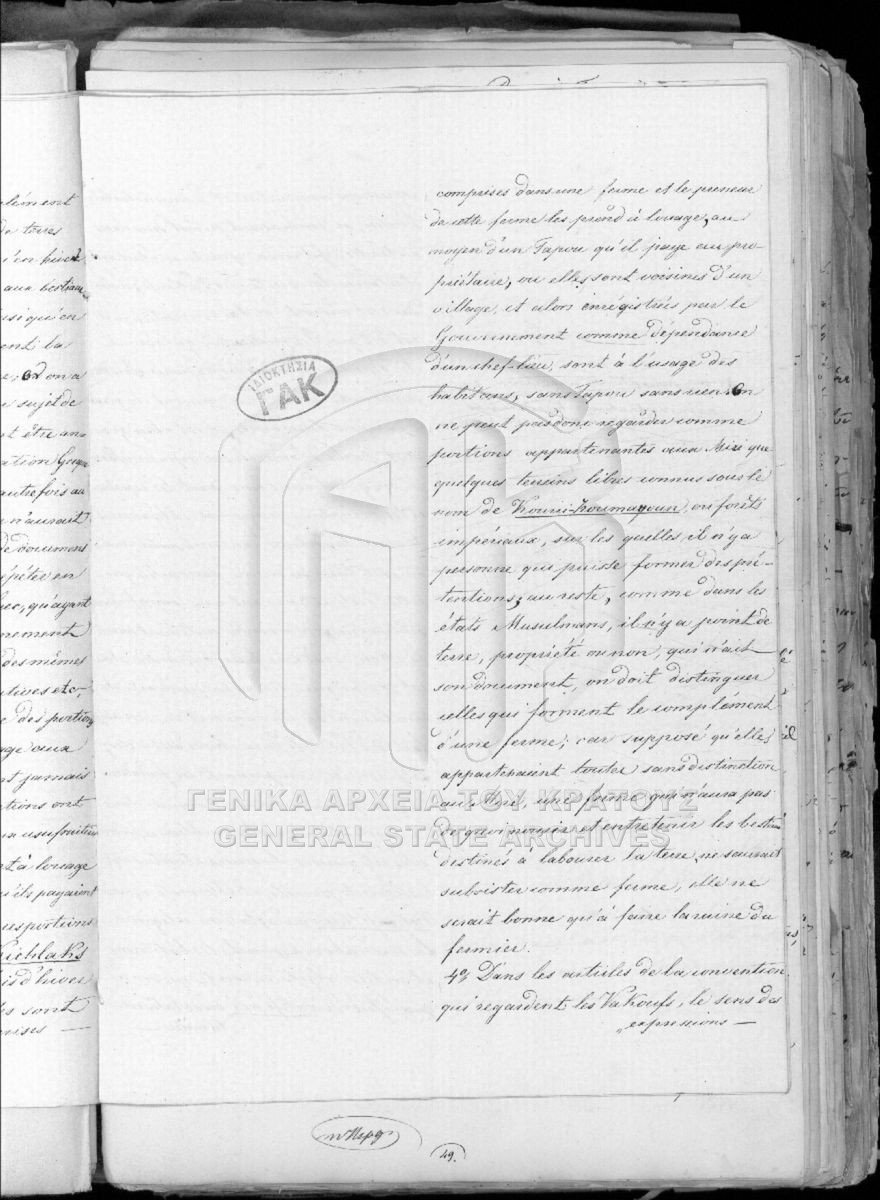 plément
de terres
qu'en hiver
aux bestiaux
ainsi qu'en
ent la
on a
sujet de
nt être an-
autrefois au
n'aurait
de documens
répétée en
qu'ayant
nement
des mêmes
atives etc,-
e des portions
age aux
ns jamais
ations ont
ux usufruitiers
nt à louage
qu'ils payaient
ces portions
Kichlaks
is d'hiver
ts sont
prises —
comprises dans une ferme et le preneur
de cette ferme les prend à louage, au
moyen d'un Tapou qu'il paye au pro-
priétaire, ou elles sont voisines d'un
village, et alors enrégistrés par le
Gouvernement comme dépendance
d'un chef-lieu, sont à l'usage des
habitans, sans Tapou sans rien. On
ne peut pas donc regarder comme
portions appartenantes aux Miri que
quelques terrains libres connus sous le
nom de Kourii-houmayoun, ou forêts
impériaux, sur les quelles il n'y a
personne qui puisse former des pré-
tentions; au reste, comme dans les
états Musulmans, il n'y a point de
terre, propriété ou non, qui n'ait
son document, on doit distinguer
celles qui forment le complément
d'une ferme; car supposé qu'elles
appartenaient toutes sans distinction
au Mire, une ferme qui n'aura pas
de quoi nourir et entretenir les bestiaux
destinés à labourer la terre, ne saurait
subsister comme ferme, elle ne
serait bonne qu'à faire la ruine du
fermier.
4º, Dans les articles de la convention
qui regardent les Vakoufs, le sens des
„expressions —
ΙΔΙΟΚΤΗΣΙΑ
ΓΑΚ
ΓΕΝΙΚΑ ΑΡΧΕΙΑ ΤΟΥ ΚΡΑΤΟΥΣ
GENERAL STATE ARCHIVES
49.